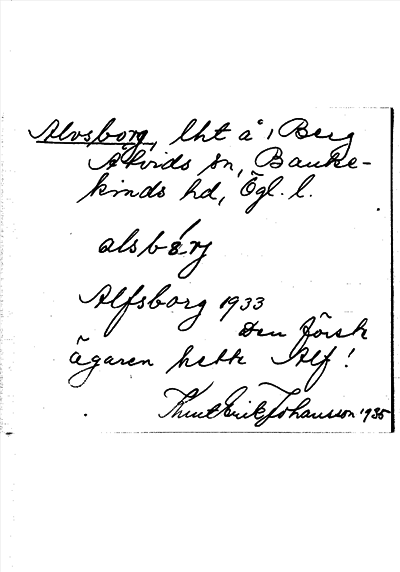 Alvsborg, lht å, Berg
Åtvids sn, Banke-
kinds hd, Ögl. l.
alsbǿrj
Alfsborg 1933
Den först
ägaren hette Alf!
Knut Erik Johansson 1935